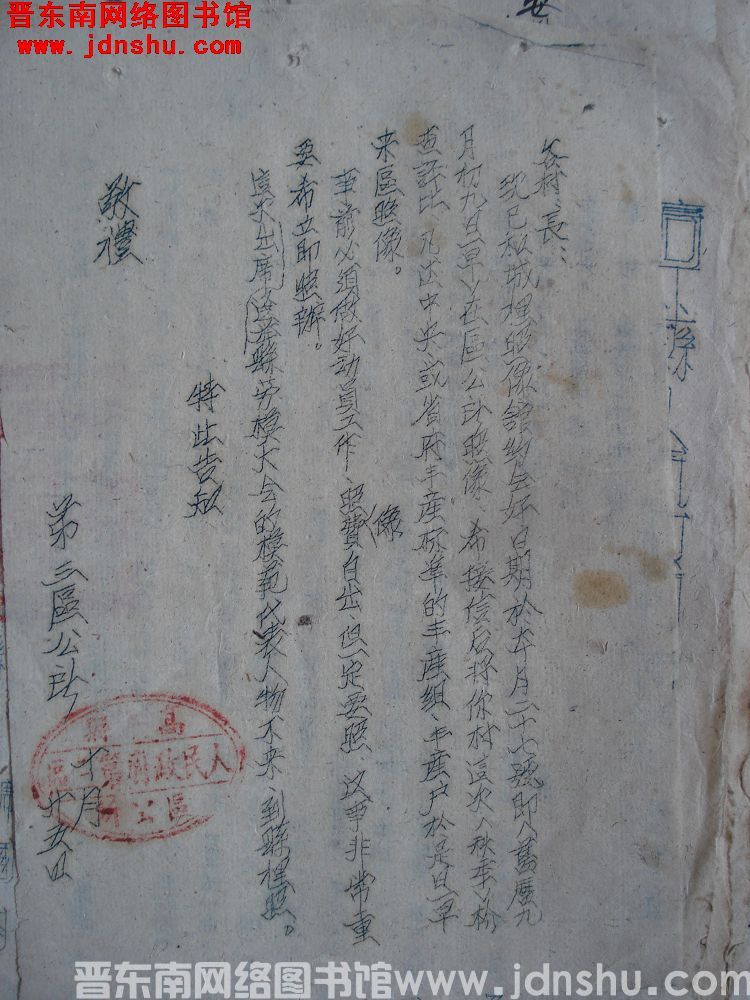 晋东南网络图书馆
www.jdnshu.com
各村、長：
現已和城裡照像舘約定好日期於本月二十七號即(舊厯九
月初九日早)在區公所照像、希接信后将你村這次(秋季)檢
查評比、凡达中央或省府丰産标準的丰産組、丰産户於是日早
来區照像。
事前必須做好动員工作、照像費自出、但一定要照、这事非常重
要希立即照辦。
這次出席潞安縣劳模大会的模範代表人物不来、到縣裡照。
特此告知
敬禮
第三區公所
十月
廿五日
人民政府第
區公所
晋东南网络图书馆www.jdnshu.com